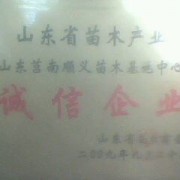 山东省苗木产业
山东莒南顺义苗木基地中心
诚信企业
山东省
二00九年